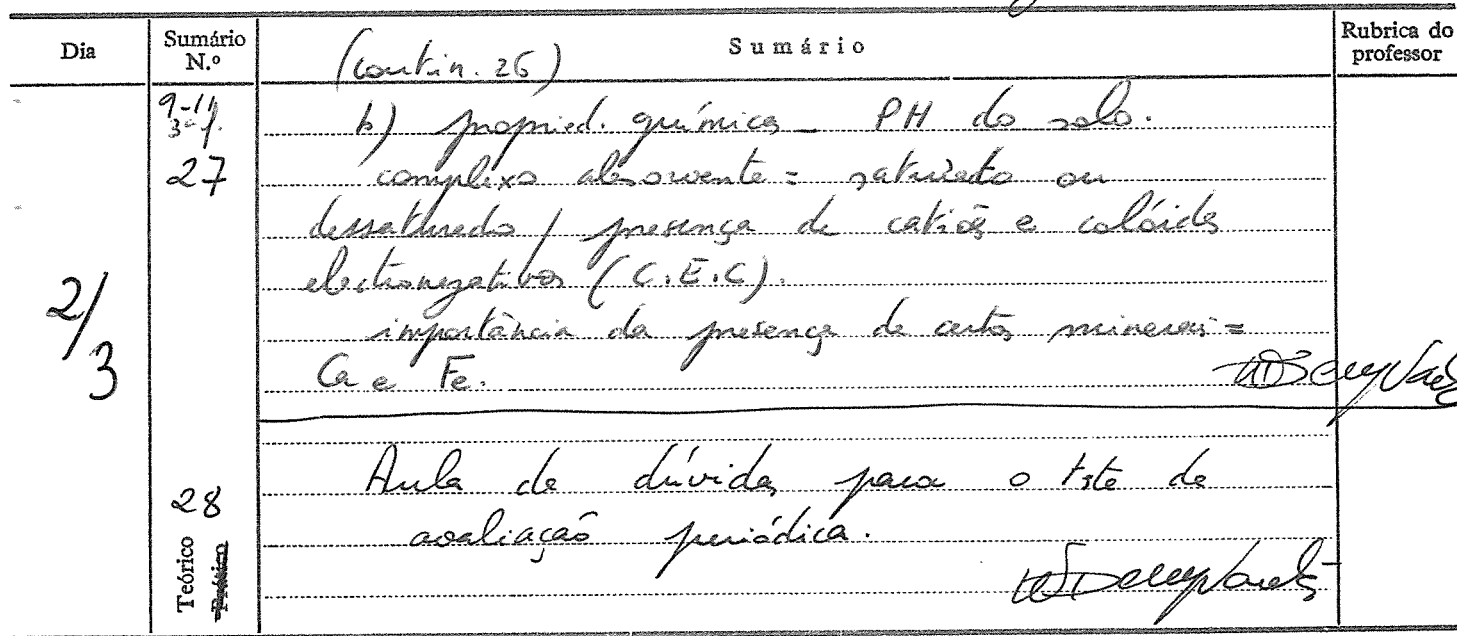 Dia Sumário N.º Sumário Rubrica do professor
(contin. 26)
9-11
3ª f.
27
b) propried. químicas - PH do solo.
complexo absorvente = saturado ou
dessaturado / presença de catiões e colóides
electronegativos (C.E.C).
importância da presença de certos minerais =
Ca e Fe.
2/3
28
Teórico
Prático
Aula de dúvidas para o teste de
avaliação periódica.